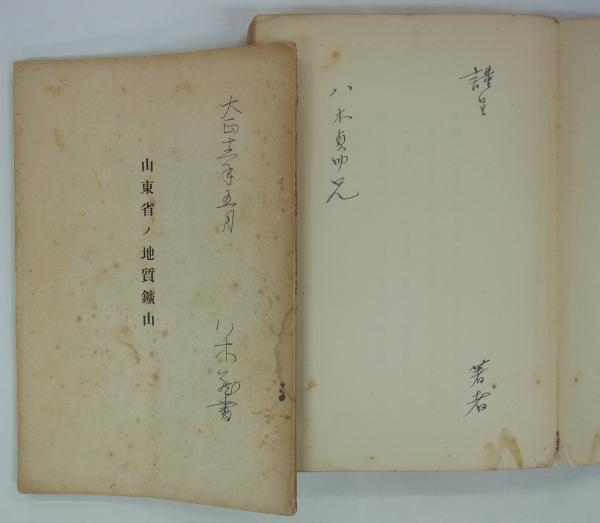 謹呈
八木貞助兄
著者
大正十二年五月
山東省ノ地質鑛山
八木蔵書